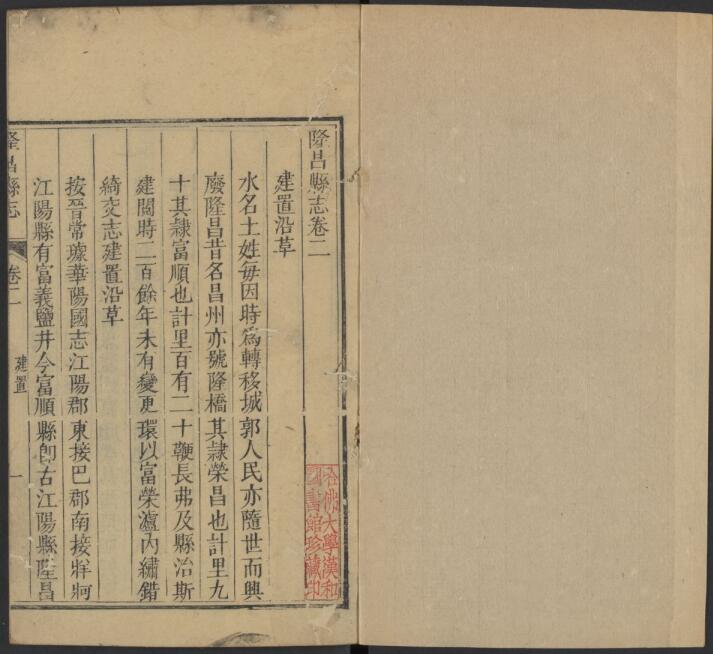 隆昌縣志卷二
建置沿革
水名土姓每因時爲轉移城郭人民亦隨世而興
廢隆昌昔名昌州亦號隆橋其隷榮昌也計里九
十其隷富順也計里百有二十鞭長弗及縣治斯
建閱時二百餘年未有變更環以富榮瀘內繡錯
綺交志建置沿革
按晉常璩華陽國志江陽郡東接巴郡南接牂牁
江陽縣有富義鹽井今富順縣卽古江陽縣隆昌
隆昌縣志
卷二
建置
一
哈佛大學漢和
圖書館珍藏印